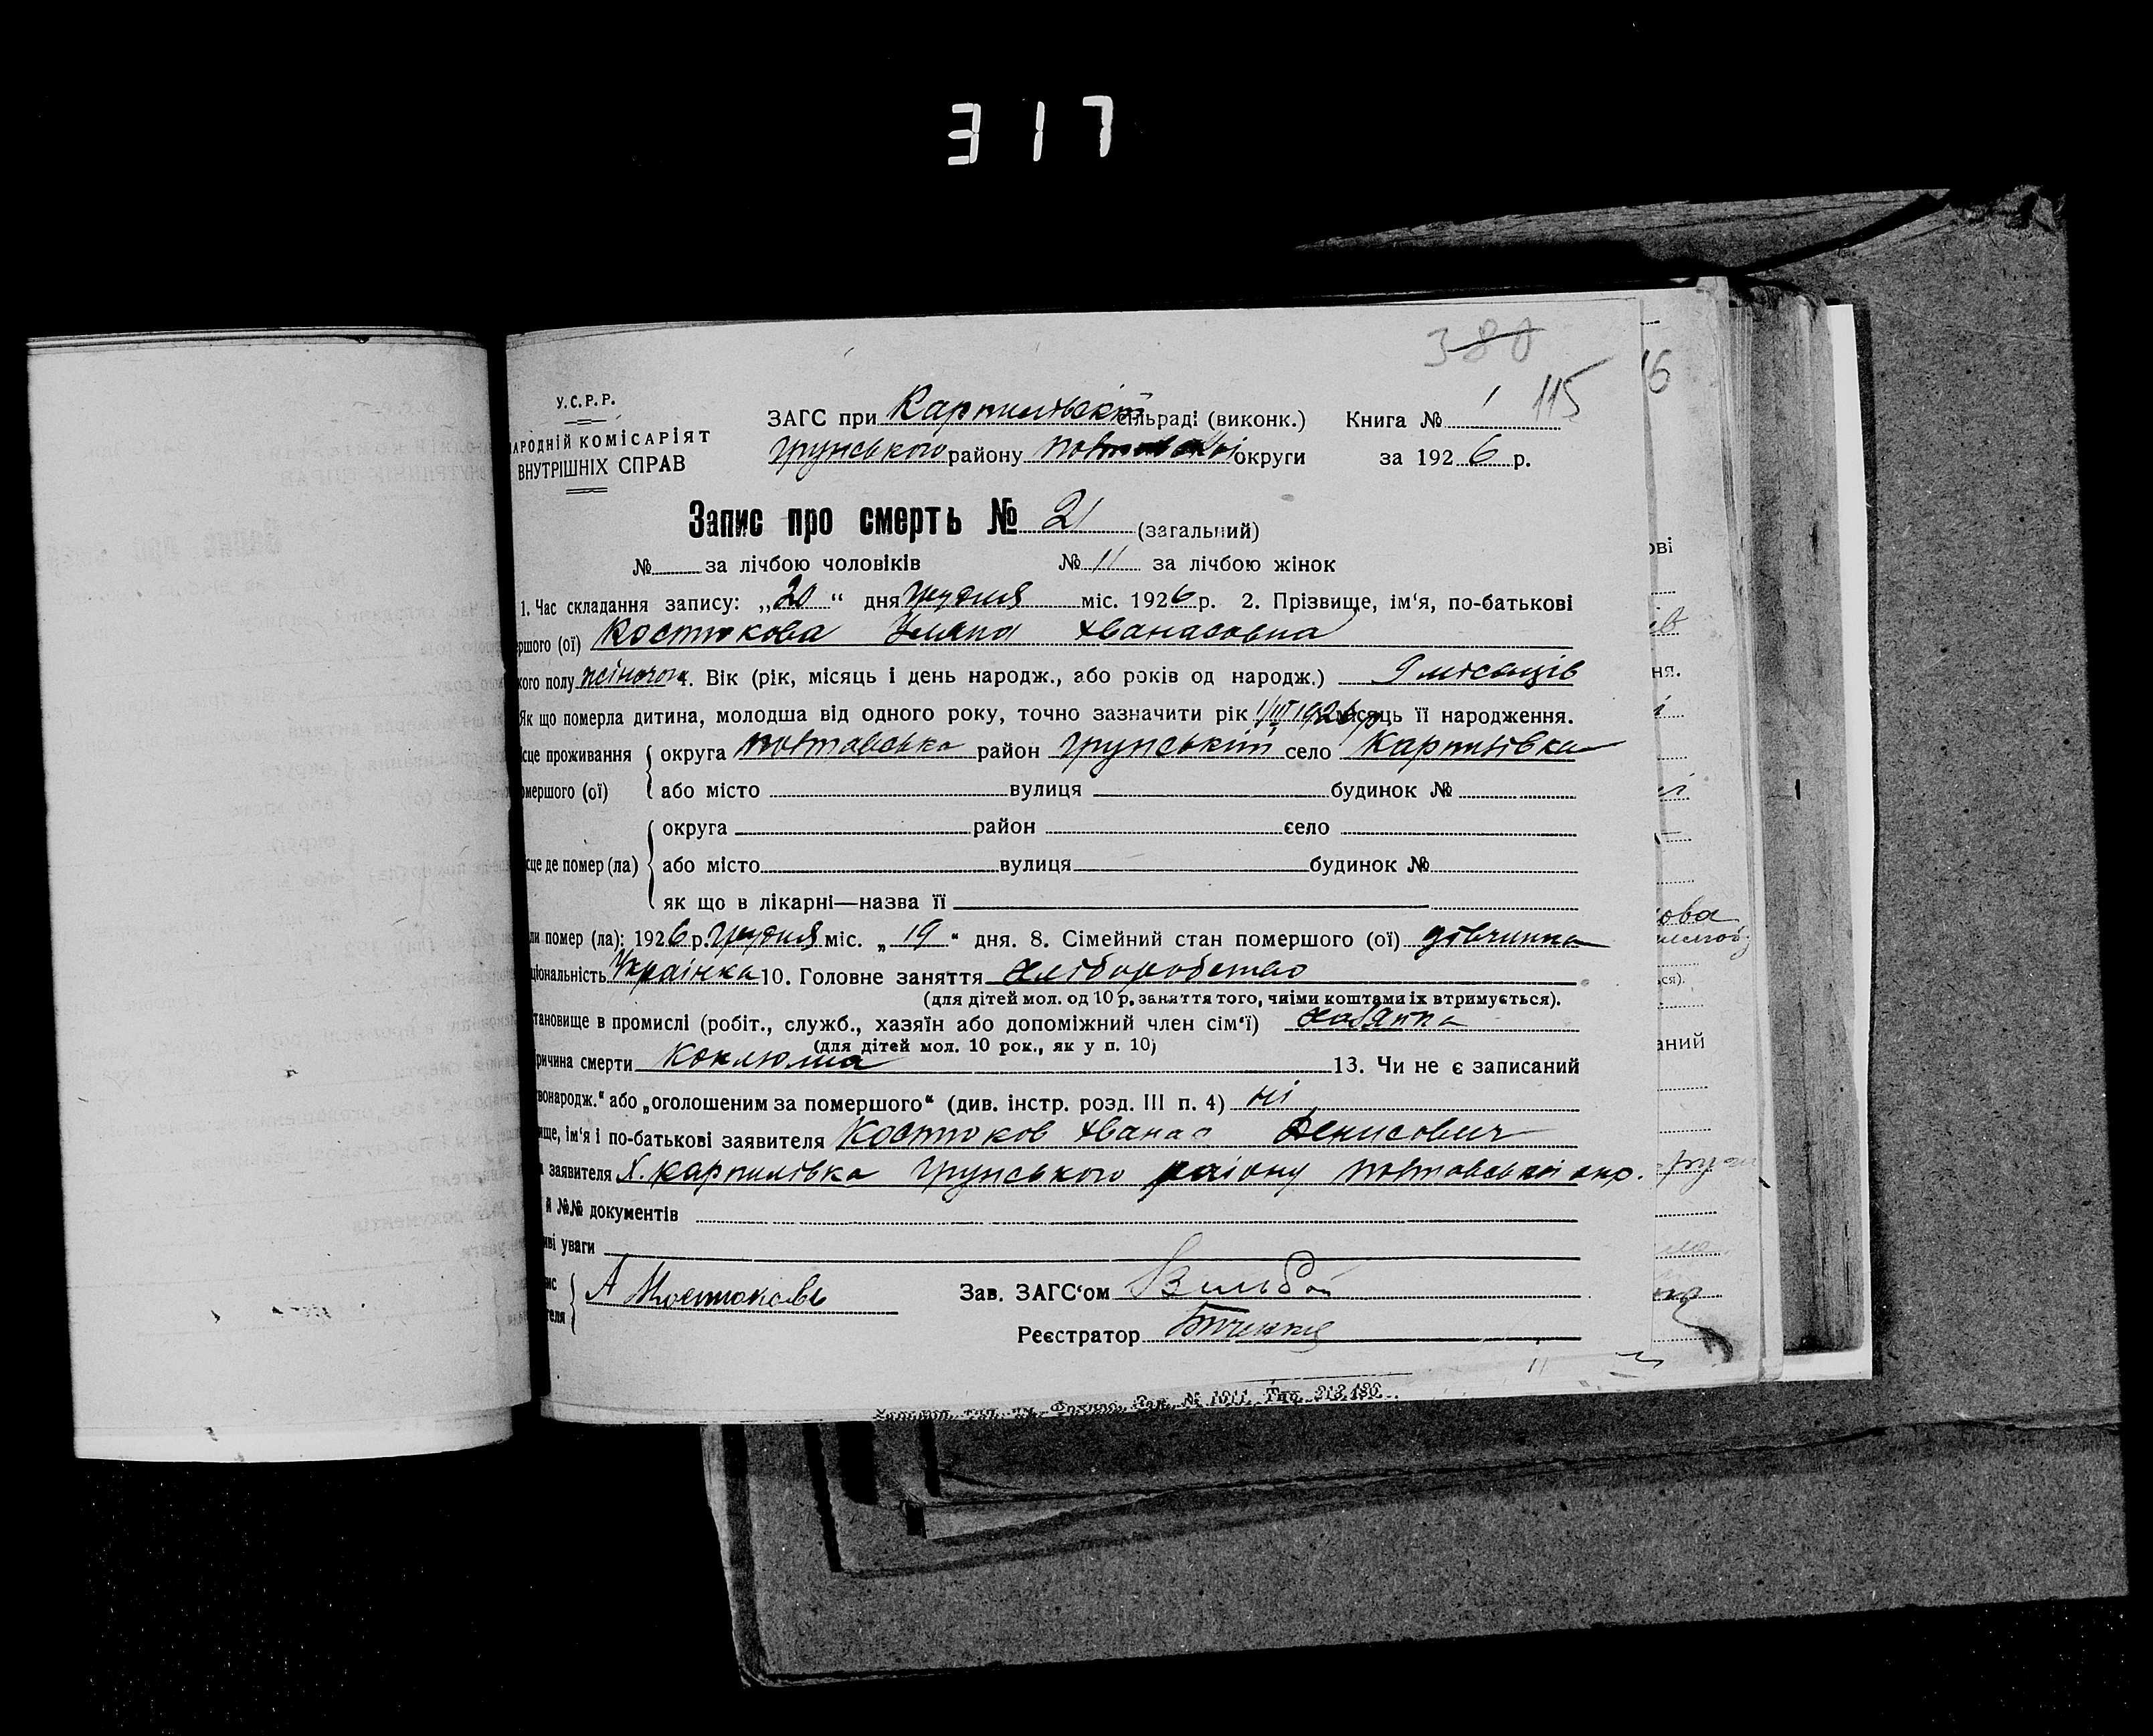 317
380
115
У.С.Р.Р.
НАРОДНІЙ КОМІСАРІЯТ
ВНУТРІШНІХ СПРАВ
ЗАГС при Карпилівскій сільраді (виконк.) Книга № 1
Грунського району Полтавської округи за 1926 р.
Запис про смерть № 21 (загальний)
№ за лічбою чоловіків № 11 за лічбою жінок
1. Час складання запису: „20“ дня Грудня міс. 1926 р. 2. Прізвище, ім'я, по-батькові
ршого (ої) Костюкова Уляна Хванасовна
кого полу жіночого 4. Вік (рік, місяць і день народж., або років од народж.) 9 місяців
Як що померла дитина, молодша від одного року, точно зазначити рік 1/III 1926 р місяць її народження.
сце проживання округа Полтавська район Грунський село Карпилівка
омершого (ої) або місто вулиця будинок №
округа район село
сце де помер (ла) або місто вулиця будинок №
як що в лікарні—назва її
ли помер (ла): 1926 р. Грудня міс. „19“ дня. 8. Сімейний стан помершого (ої) дівчинка
ціональність Українка 10. Головне заняття хліборобство
(для дітей мол. од 10 р. заняття того, чиїми коштами їх втримується).
тановище в промислі (робіт., служб., хазяїн або допоміжний член сім'ї) хазяїна
(для дітей мол. 10 рок., як у п. 10)
ричина смерти Коклюша 13. Чи не є записаний
вонародж.“ або „оголошеним за помершого“ (див. інстр. розд. III п. 4) ні
ище, ім'я і по-батькові заявителя Костюков Хванас Денисович
заявителя х. Карпилівка Грунського району Полтавської окр.
й №№ документів
иві уваги
А Костюковъ Зав. ЗАГС'ом
теля Реєстратор
Зак. № 1011. Тир. 313.480.